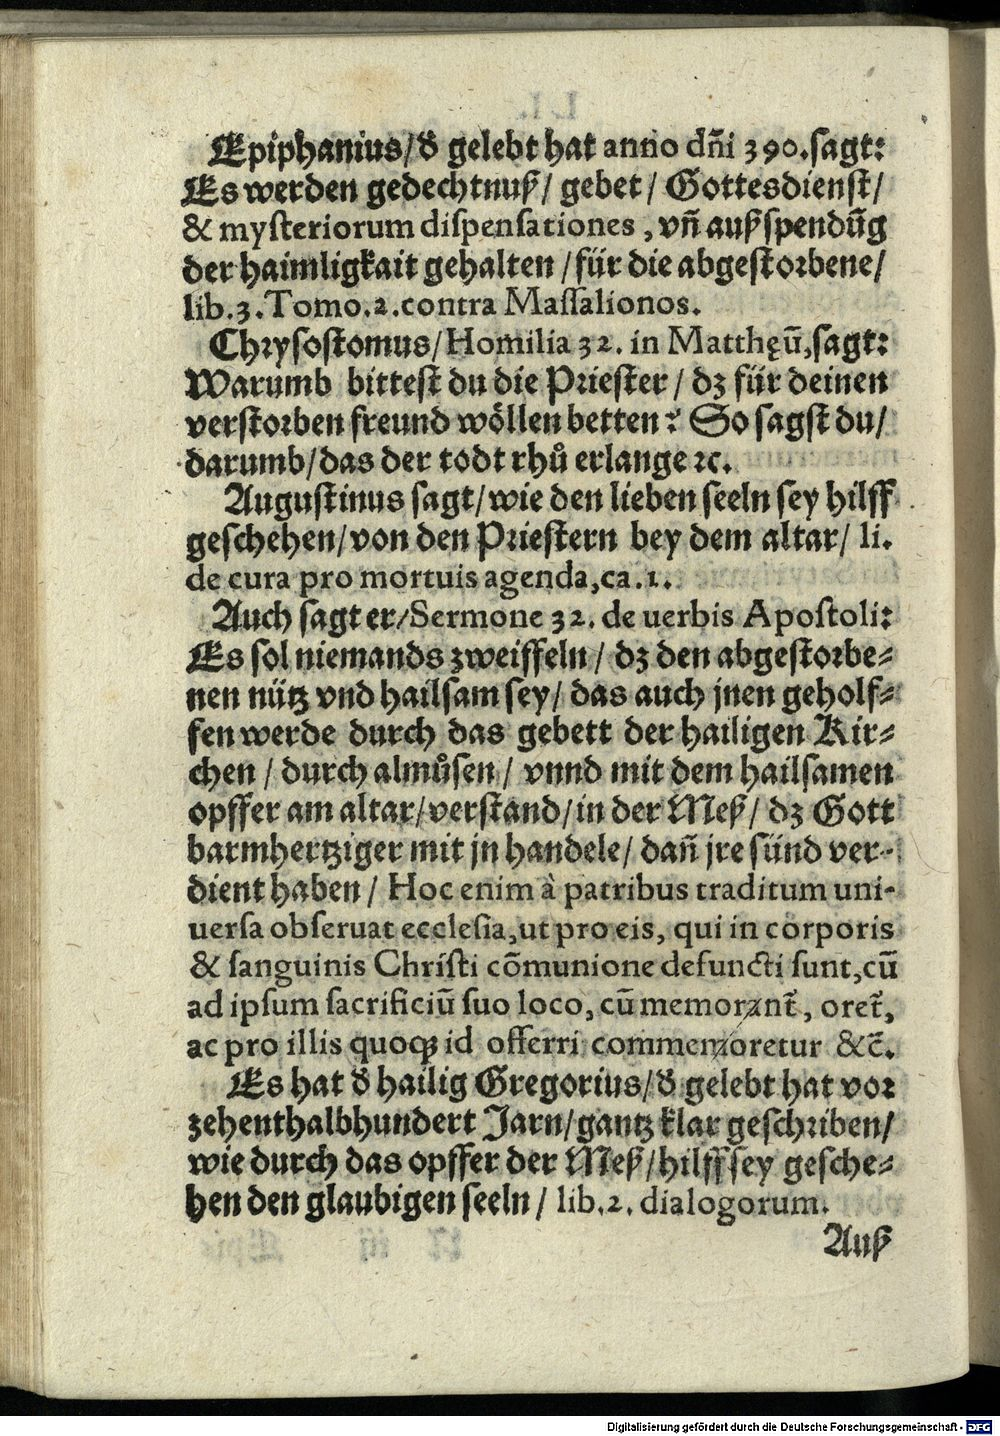 Epiphanius/ d̕ gelebt hat anno dñi 390. sagt:
Es werden gedechtnuß/ gebet/ Gottesdienst/
& mysteriorum dispensationes, vñ außspendũg
der haimligkait gehalten/ für die abgestorbene/
lib.3.Tomo.2.contra Massalionos.
Chrysostomus/ Homilia 32. in Matthęũ, sagt:
Warumb bittest du die Priester/ dz für deinen
verstorben freund wöllen betten? So sagst du/
darumb/ das der todt rhů erlange ꝛc.
Augustinus sagt/ wie den lieben seeln sey hilff
geschehen/ von den Priestern bey dem altar/ li.
de cura pro mortuis agenda, ca.1.
Auch sagt er/ Sermone 32. de uerbis Apostoli:
Es sol niemands zweiffeln/ dz den abgestorbe⸗
nen nütz vnd hailsam sey/ das auch jnen geholf⸗
fen werde durch das gebett der hailigen Kir⸗
chen/ durch almůsen/ vnnd mit dem hailsamen
opffer am altar/ verstand/ in der Meß/ dz Gott
barmhertziger mit jn handele/ dañ jre sünd ver-
dient haben/ Hoc enim à patribus traditum uni-
uersa obseruat ecclesia, ut pro eis, qui in corporis
& sanguinis Christi cõmunione defuncti sunt, cũ
ad ipsum sacrificiũ suo loco, cũ memorant̃, oret̃,
ac pro illis quoqꝫ id offerri commemoretur &c̃.
Es hat d̕ hailig Gregorius/ d̕ gelebt hat vor
zehenthalbhundert Jarn/ gantz klar geschriben/
wie durch das opffer der Meß/ hilff sey gesche⸗
hen den glaubigen seeln/ lib.2. dialogorum.
Auß
Digitalisierung gefördert durch die Deutsche Forschungsgemeinschaft - DFG